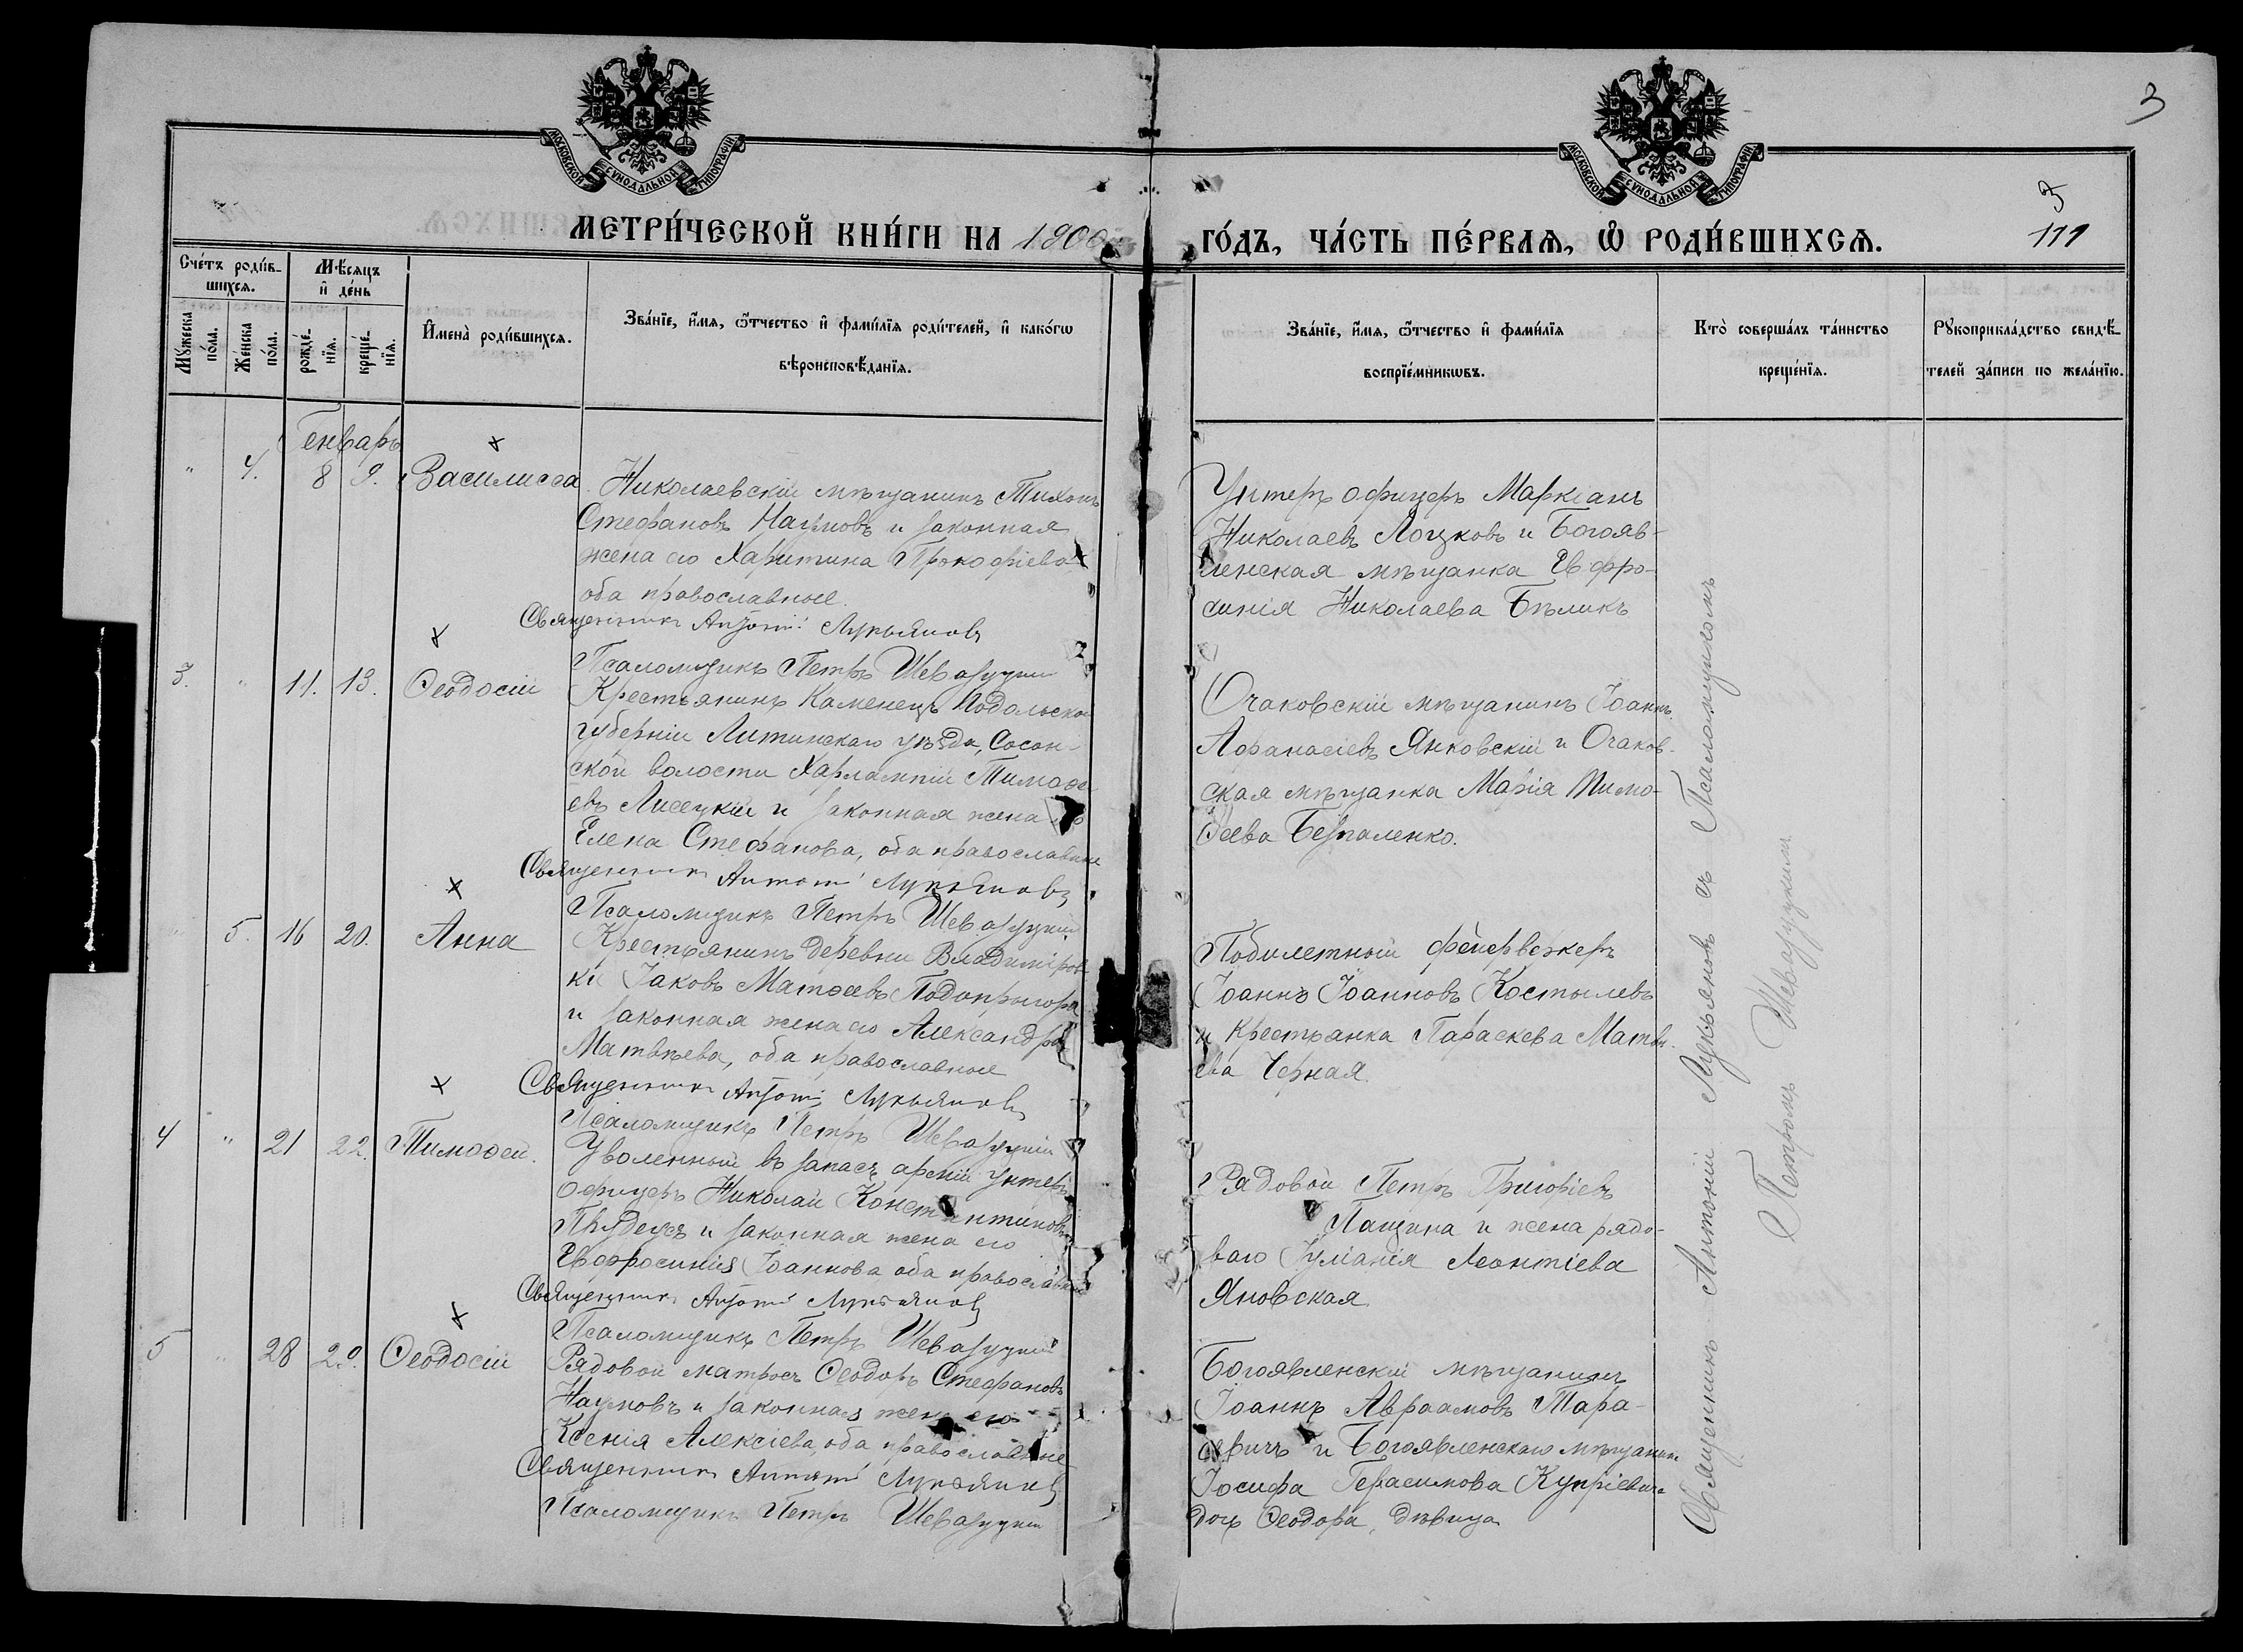 3
МОСКОВСКОЙ СѴНОДАЛЬНОЙ ТИПОГРАФІИ
МОСКОВСКОЙ СѴНОДАЛЬНОЙ ТИПОГРАФІИ
МЕТРИ́ЧЕСКОЙ КНИ́ГИ НА 1900
ГО́ДЪ, ЧА́СТЬ ПЕ́РВАѦ, Ѽ РОДИ́ВШИХСѦ.
111
Сче́тъ роди́в-
шихсѧ.
Мꙋ́жеска
по́ла.
Же́нска
по́ла.
Мѣ́сѧцъ
и҆ де́нь
рожде́-
нїѧ.
креще́-
нїѧ.
И҆мена̀ роди́вшихсѧ.
Зва́нїе, и҆́мѧ, ѻ҆́тчество и҆ фами́лїѧ роди́телей, и҆ како́гѡ
вѣроисповѣ́данїѧ.
Зва́нїе, и҆́мѧ, ѻ҆́тчество и҆ фами́лїѧ
воспрїе́мникѡвъ.
Кто̀ соверша́лъ та́инство
креще́нїѧ.
Рꙋкоприкла́дство свидѣ́-
телей за́писи по жела́нїю.
Генварь
" 4. 8 9. Василисса
Николаевскій мѣщанинъ Тихонъ
Стефановъ Наумовъ и законная
жена его Харитина Прокофіева
оба православные.
Священникъ Антоній Лукьяновъ
Псаломщикъ Петръ Шевазуцкій
Унтеръ офицеръ Маркіанъ
Николаевъ Лоцковъ и Богояв-
ленская мѣщанка Евфро-
синія Николаева Бѣликъ
3. " 11. 13. Ѳеодосій
Крестьянинъ Каменецъ Подольской
губерніи Литинскаго уѣзда, Сосон-
ской волости Харлампій Тимоѳе
евъ Лисецкій и законная жена его
Елена Стефанова, оба православные
Священникъ Антоній Лукьяновъ
Псаломщикъ Петръ Шевазуцкій
Очаковскій мѣщанинъ Іоаннъ
Афанасіевъ Янковскій и Очаков-
ская мѣщанка Марія Тимо-
ѳеева Безпаленко.
" 5. 16 20. Анна
Крестьянинъ деревни Владиміров
ки Іаковъ Матѳеевъ Подопригора
и законная жена его Александра
Матвѣева, оба православные
Священникъ Антоній Лукьяновъ
Псаломщикъ Петръ Шевазуцкій
Побилетный фейерверкеръ
Іоаннъ Іоанновъ Костылевъ
и крестьянка Параскева Матѳе-
ева Черная
4 " 21 22. Тимоѳей.
Уволенный въ запасъ арміи унтеръ
офицеръ Николай Константиновъ
и законная жена его
Евфросинія Іоаннова оба православные
Священникъ Антоній Лукьяновъ
Псаломщикъ Петръ Шевазуцкій
Рядовой Петръ Григоріевъ
Пащина и жена рядо-
ваго Іуліанія Леонтіева
Яновская
5 " 28 29. Ѳеодосій
Рядовой матросъ Ѳеодоръ Стефановъ
Наумовъ и законная жена его
Ксенія Алексіева оба православные
Священникъ Антоній Лукьяновъ
Псаломщикъ Петръ Шевазуцкій
Богоявленскій мѣщанинъ
Іоаннъ Авраамовъ Тара-
севичъ и Богоявленскаго мѣщанина
Іосифа Герасимова Купріевича
дочь Ѳеодора, дѣвица
Священникъ Антоній Лукьяновъ съ Псаломщикомъ
Петромъ Шевазуцкимъ